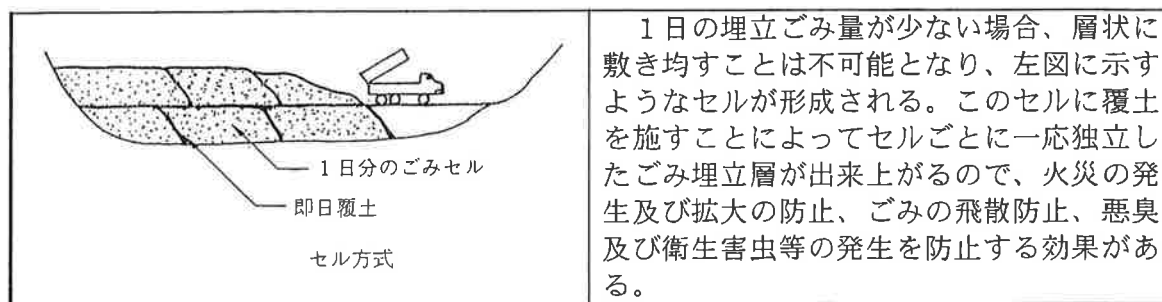 1日分のごみセル
即日覆土
セル方式
1日の埋立ごみ量が少ない場合、層状に
敷き均すことは不可能となり、左図に示す
ようなセルが形成される。このセルに覆土
を施すことによってセルごとに一応独立し
たごみ埋立層が出来上がるので、火災の発
生及び拡大の防止、ごみの飛散防止、悪臭
及び衛生害虫等の発生を防止する効果があ
る。